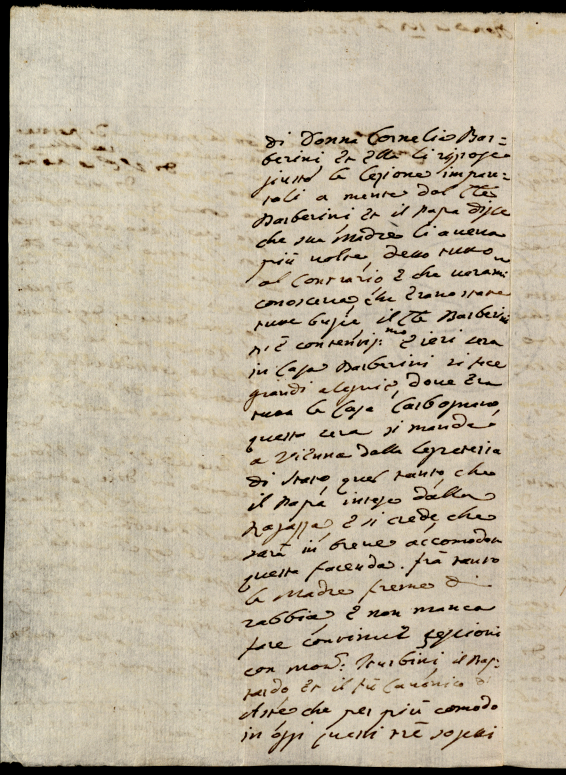 di Donna Cornelia Bar=
berini et ella li rispose
giusto la lezione impara=
tali a mente dal
Barberini et il Papa disse
che sua Madre li aveva
più volte detto tutto
al contrario e che
conosceva che erano state
tutte bugie il Barberini
n'è contentiss:mo e ieri sera
in Casa Barberini si fece
grandi alegrie, dove era
tutta la Casa Carbognano,
questa sera si manda
a Vienna dalla Segreteria
di Stato quel tanto che
il Papa intese dalla
Ragazza e si crede che
sarà in breve accomodata
questa facenda. frà tanto
la Madre freme di
rabbia e non manca
fare continue sessioni
con Mon:r il Bas=
tardo et il Canonico
che per più comodo
in oggi questi trè sogetti